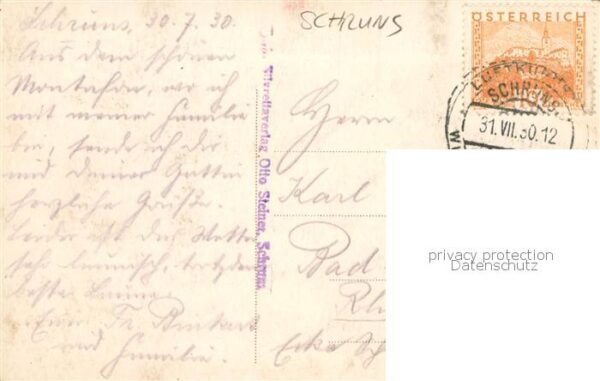 Schruns, 30.7.30.
Aus dem schönen
Montafon, wo ich
mit meiner Familie
bin, sende ich dir
und Deiner Gattin
herzliche Grüße.
Leider ist das Wetter
sehr launisch, trotzdem
beste Laune
Euer
und Familie.
SCHRUNS
Silvrettaverlag Otto Steiner, Schruns
ÖSTERREICH
LUFTKURORT
SCHRUNS
31.VII.30.12
Herrn
Karl
Bad
Ecke
privacy protection
Datenschutz